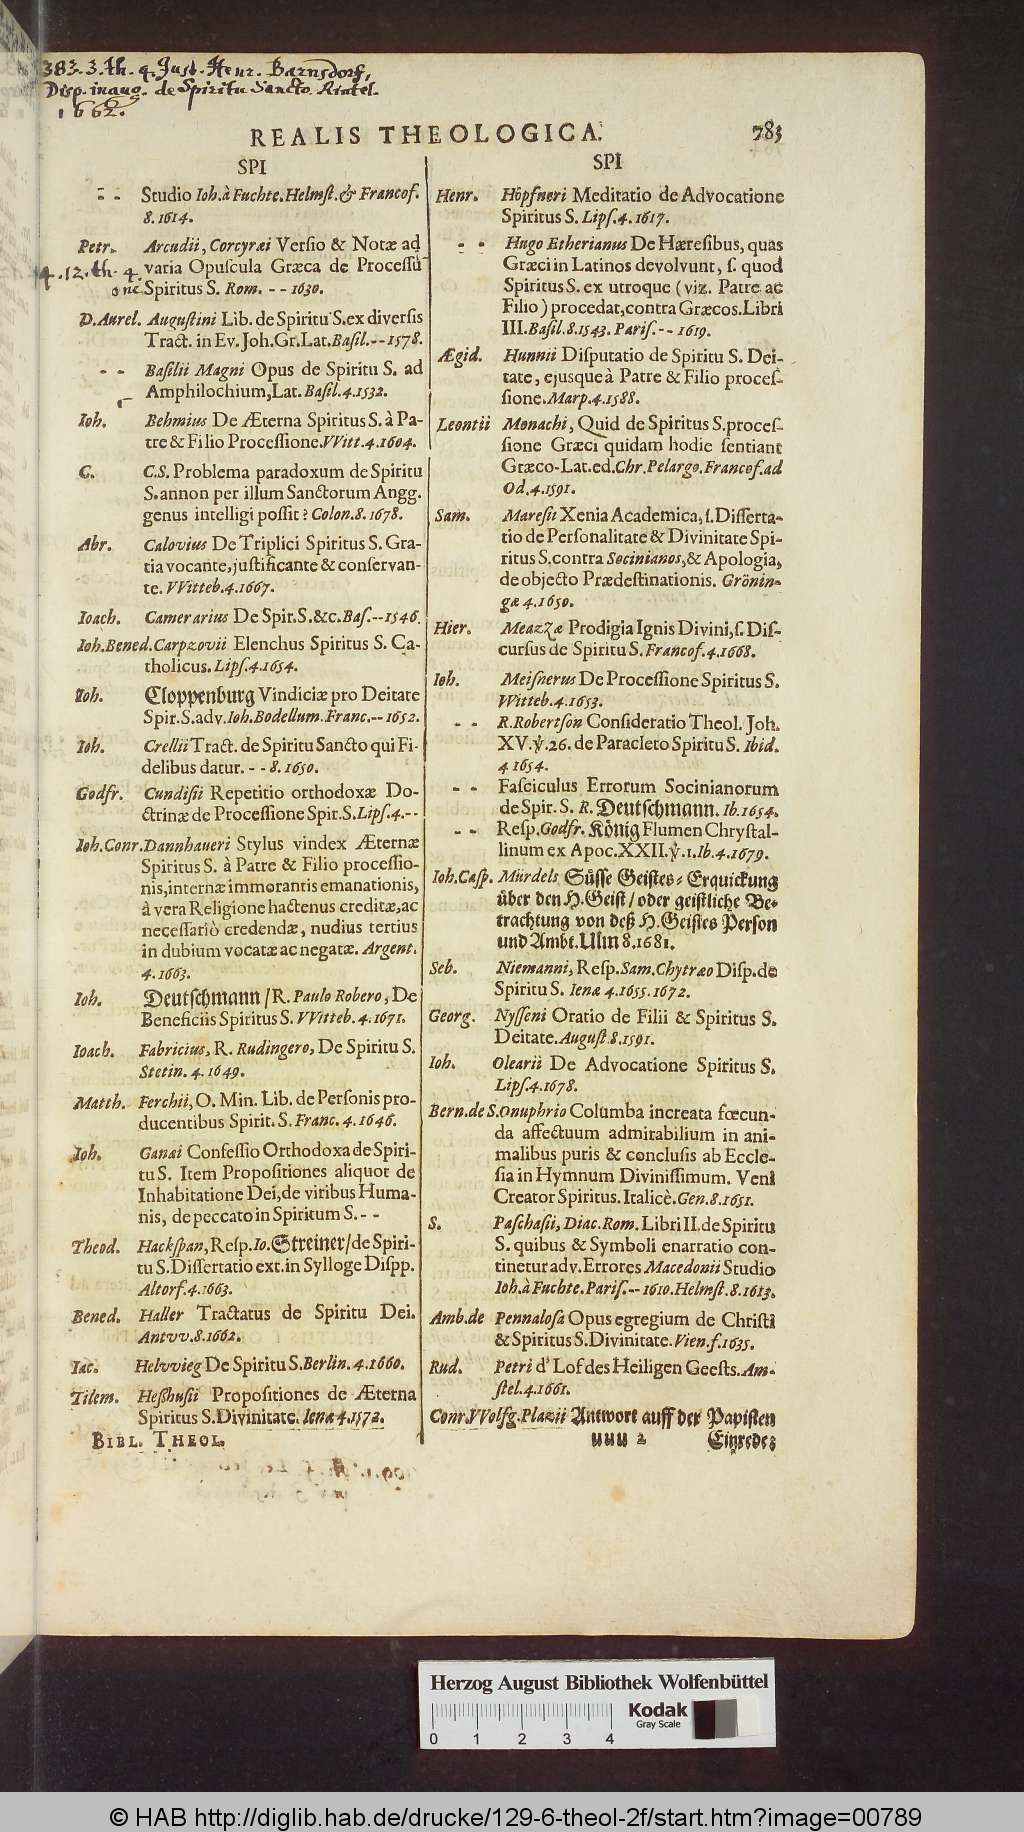 383. 3. th. 4. Just. Henr. Barnsdorf,
Disp. inaug. de Spiritu Sancto. Rintel.
1662.
REALIS THEOLOGICA. 783
SPI
- - Studio Ioh. à Fuchte. Helmst. & Francof.
8. 1614.
Petr. Arcudii, Corcyræi Versio & Notæ ad
4. 12. th. 4. varia Opuscula Græca de Processũ
one Spiritus S. Rom. - - 1630.
D. Aurel. Augustini Lib. de Spiritu S. ex diversis
Tract. in Ev. Joh. Gr. Lat. Basil. -- 1578.
- - Basilii Magni Opus de Spiritu S. ad
Amphilochium, Lat. Basil. 4. 1532.
Ioh. Behmius De Æterna Spiritus S. à Pa-
tre & Filio Processione. VVitt. 4. 1604.
C. C. S. Problema paradoxum de Spiritu
S. annon per illum Sanctorum Angg.
genus intelligi possit? Colon. 8. 1678.
Abr. Calovius De Triplici Spiritus S. Gra-
tia vocante, justificante & conservan-
te. VVitteb. 4. 1667.
Ioach. Camerarius De Spir. S. &c. Bas. -- 1546.
Ioh. Bened. Carpzovii Elenchus Spiritus S. Ca-
tholicus. Lips. 4. 1654.
Ioh. Cloppenburg Vindiciæ pro Deitate
Spir. S. adv. Ioh. Bodellum. Franc. -- 1652.
Ioh. Crellii Tract. de Spiritu Sancto qui Fi-
delibus datur. - - 8. 1650.
Godfr. Cundisii Repetitio orthodoxæ Do-
ctrinæ de Processione Spir. S. Lips. 4. --
Ioh. Conr. Dannhaueri Stylus vindex Æternæ
Spiritus S. à Patre & Filio processio-
nis, internæ immorantis emanationis,
à vera Religione hactenus creditæ, ac
necessariò credendæ, nudius tertius
in dubium vocatæ ac negatæ. Argent.
4. 1663.
Ioh. Deutschmann / R. Paulo Robero, De
Beneficiis Spiritus S. VVitteb. 4. 1671.
Ioach. Fabricius, R. Rudingero, De Spiritu S.
Stetin. 4. 1649.
Matth. Ferchii, O. Min. Lib. de Personis pro-
ducentibus Spirit. S. Franc. 4. 1646.
Ioh. Ganai Confessio Orthodoxa de Spiri-
tu S. Item Propositiones aliquot de
Inhabitatione Dei, de viribus Huma-
nis, de peccato in Spiritum S. - -
Theod. Hackspan, Resp. Io. Streiner / de Spiri-
tu S. Dissertatio ext. in Sylloge Dispp.
Altorf. 4. 1663.
Bened. Haller Tractatus de Spiritu Dei.
Antvv. 8. 1662.
Iac. Helvvieg De Spiritu S. Berlin. 4. 1660.
Tilem. Heßhusii Propositiones de Æterna
Spiritus S. Divinitate. Ienæ 4. 1572.
BIBL. THEOL.
SPI
Henr. Höpfneri Meditatio de Advocatione
Spiritus S. Lips. 4. 1617.
- - Hugo Etherianus De Hæresibus, quas
Græci in Latinos devolvunt, s. quod
Spiritus S. ex utroque (viz. Patre ac
Filio) procedat, contra Græcos. Libri
III. Basil. 8. 1543. Paris. -- 1619.
Ægid. Hunnii Disputatio de Spiritu S. Dei-
tate, ejusque à Patre & Filio proces-
sione. Marp. 4. 1588.
Leontii Monachi, Quid de Spiritus S. proces-
sione Græci quidam hodie sentiant
Græco-Lat. ed. Chr. Pelargo. Francof. ad
Od. 4. 1591.
Sam. Maresii Xenia Academica, s. Disserta-
tio de Personalitate & Divinitate Spi-
ritus S. contra Socinianos, & Apologia,
de objecto Prædestinationis. Grönin-
gæ 4. 1650.
Hier. Meazzæ Prodigia Ignis Divini, s. Dis-
cursus de Spiritu S. Francof. 4. 1668.
Ioh. Meisnerus De Processione Spiritus S.
Witteb. 4. 1653.
- - R. Robertson Consideratio Theol. Joh.
XV. ℣. 26. de Paracleto Spiritu S. Ibid.
4 1654.
- - Fasciculus Errorum Socinianorum
de Spir. S. R. Deutschmann. Ib. 1654.
- - Resp. Godfr. König Flumen Chrystal-
linum ex Apoc. XXII. ℣. 1. Ib. 4. 1679.
Ioh. Casp. Mürdels Süsse Geistes-Erquickung
über den H. Geist / oder geistliche Be-
trachtung von deß H. Geistes Person
und Ambt. Ulm 8. 1681.
Seb. Niemanni, Resp. Sam. Chytræo Disp. de
Spiritu S. Ienæ 4. 1655. 1672.
Georg. Nysseni Oratio de Filii & Spiritus S.
Deitate. August. 8. 1591.
Ioh. Olearii De Advocatione Spiritus S.
Lips. 4. 1678.
Bern. de S. Onuphrio Columba increata fœcun-
da affectuum admirabilium in ani-
malibus puris & conclusis ab Eccle-
sia in Hymnum Divinissimum. Veni
Creator Spiritus. Italicè. Gen. 8. 1651.
S. Paschasii, Diac. Rom. Libri II. de Spiritu
S. quibus & Symboli enarratio con-
tinetur adv. Errores Macedonii Studio
Ioh. à Fuchte. Paris. -- 1610. Helmst. 8. 1613.
Amb. de Pennalosa Opus egregium de Christi
& Spiritus S. Divinitate. Vien. f. 1635.
Rud. Petri d' Lof des Heiligen Geests. Am-
stel. 4. 1661.
Conr. VVolfg. Plazii Antwort auff der Papisten
uuu 2 Einrede
Herzog August Bibliothek Wolfenbüttel
Kodak
Gray Scale
0 1 2 3 4
© HAB http://diglib.hab.de/drucke/129-6-theol-2f/start.htm?image=00789